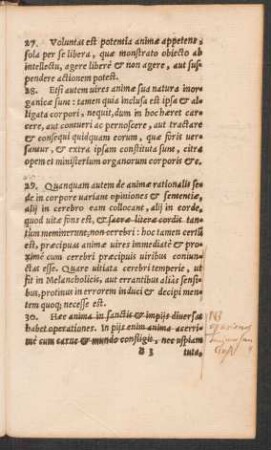 27. Voluntas est potentia animæ appetens,
sola per se libera, quæ monstrato obiecto ab
intellectu, agere liberè & non agere, aut sus-
pendere actionem potest.
28. Etsi autem uires animæ sua natura inor-
ganicæ sunt: tamen quia inclusa est ipsa & al-
ligata corpori, nequit, dum in hoc hæret car-
cere, aut contueri ac pernoscere, aut tractare
& consequi quidquam eorum, quæ foris uer-
santur, & extra ipsam constituta sunt, citra
opem et ministerium organorum corporis &c.
29. Quanquam autem de animæ rationalis se-
de in corpore uariant opiniones & sententiæ,
alij in cerebro eam collocant, alij in corde,
quod uitæ fons est, & sacræ literæ cordis tan-
tùm meminerunt, non cerebri: hoc tamen certū
est, præcipuas animæ uires immediatè & pro-
ximè cum cerebri præcipuis uiribus coniun-
ctas esse. Quare uitiata cerebri temperie, ut
fit in Melancholicis, aut errantibus alias sensi-
bus, protinus in errorem induci & decipi men-
tem quoq; necesse est.
30. Hæc anima in sanctis & impijs diuersas
habet operationes. In pijs enim anima acerri-
mè cum carne & mundo confligit, nec uspiam
B 3 tuta,